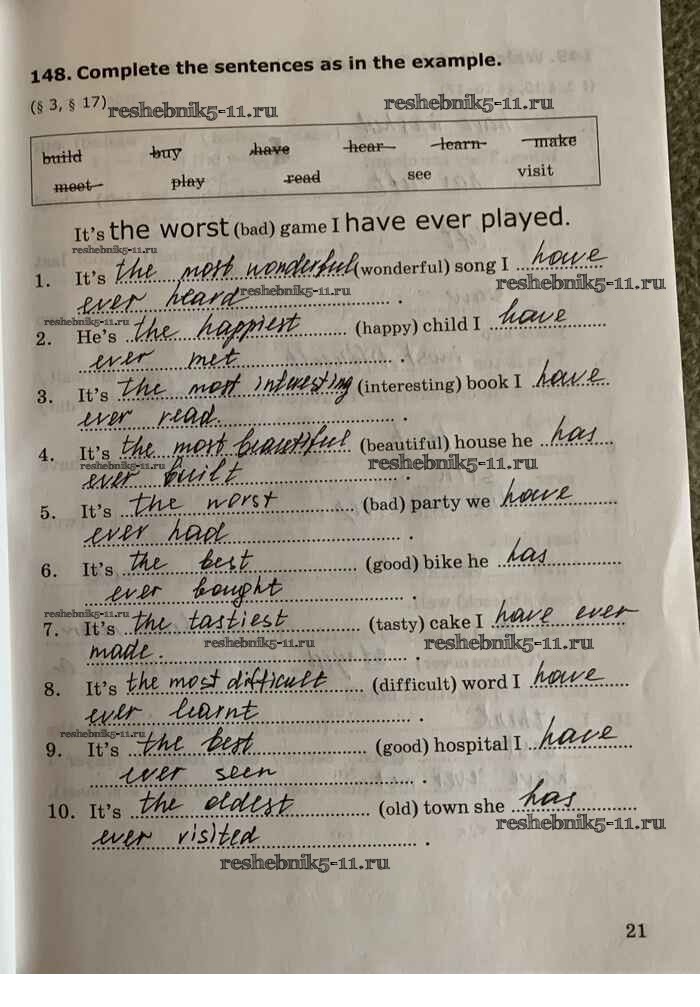 148. Complete the sentences as in the example.
(§ 3, § 17) reshebnik5-11.ru reshebnik5-11.ru
build buy have hear learn make
meet play read see visit
It's the worst (bad) game I have ever played.
reshebnik5-11.ru
1. It's the most wonderful (wonderful) song I have
reshebnik5-11.ru
ever heard reshebnik5-11.ru .
reshebnik5-11.ru
2. He's the happiest (happy) child I have
ever met .
3. It's the most interesting (interesting) book I have
ever read .
4. It's the most beautiful (beautiful) house he has
reshebnik5-11.ru reshebnik5-11.ru
ever built .
5. It's the worst (bad) party we have
ever had .
6. It's the best (good) bike he has
ever bought .
reshebnik5-11.ru
7. It's the tastiest (tasty) cake I have ever
reshebnik5-11.ru reshebnik5-11.ru
made. .
8. It's the most difficult (difficult) word I have
ever learnt .
reshebnik5-11.ru
9. It's the best (good) hospital I have
ever seen .
10. It's the oldest (old) town she has
reshebnik5-11.ru
ever visited .
reshebnik5-11.ru
21